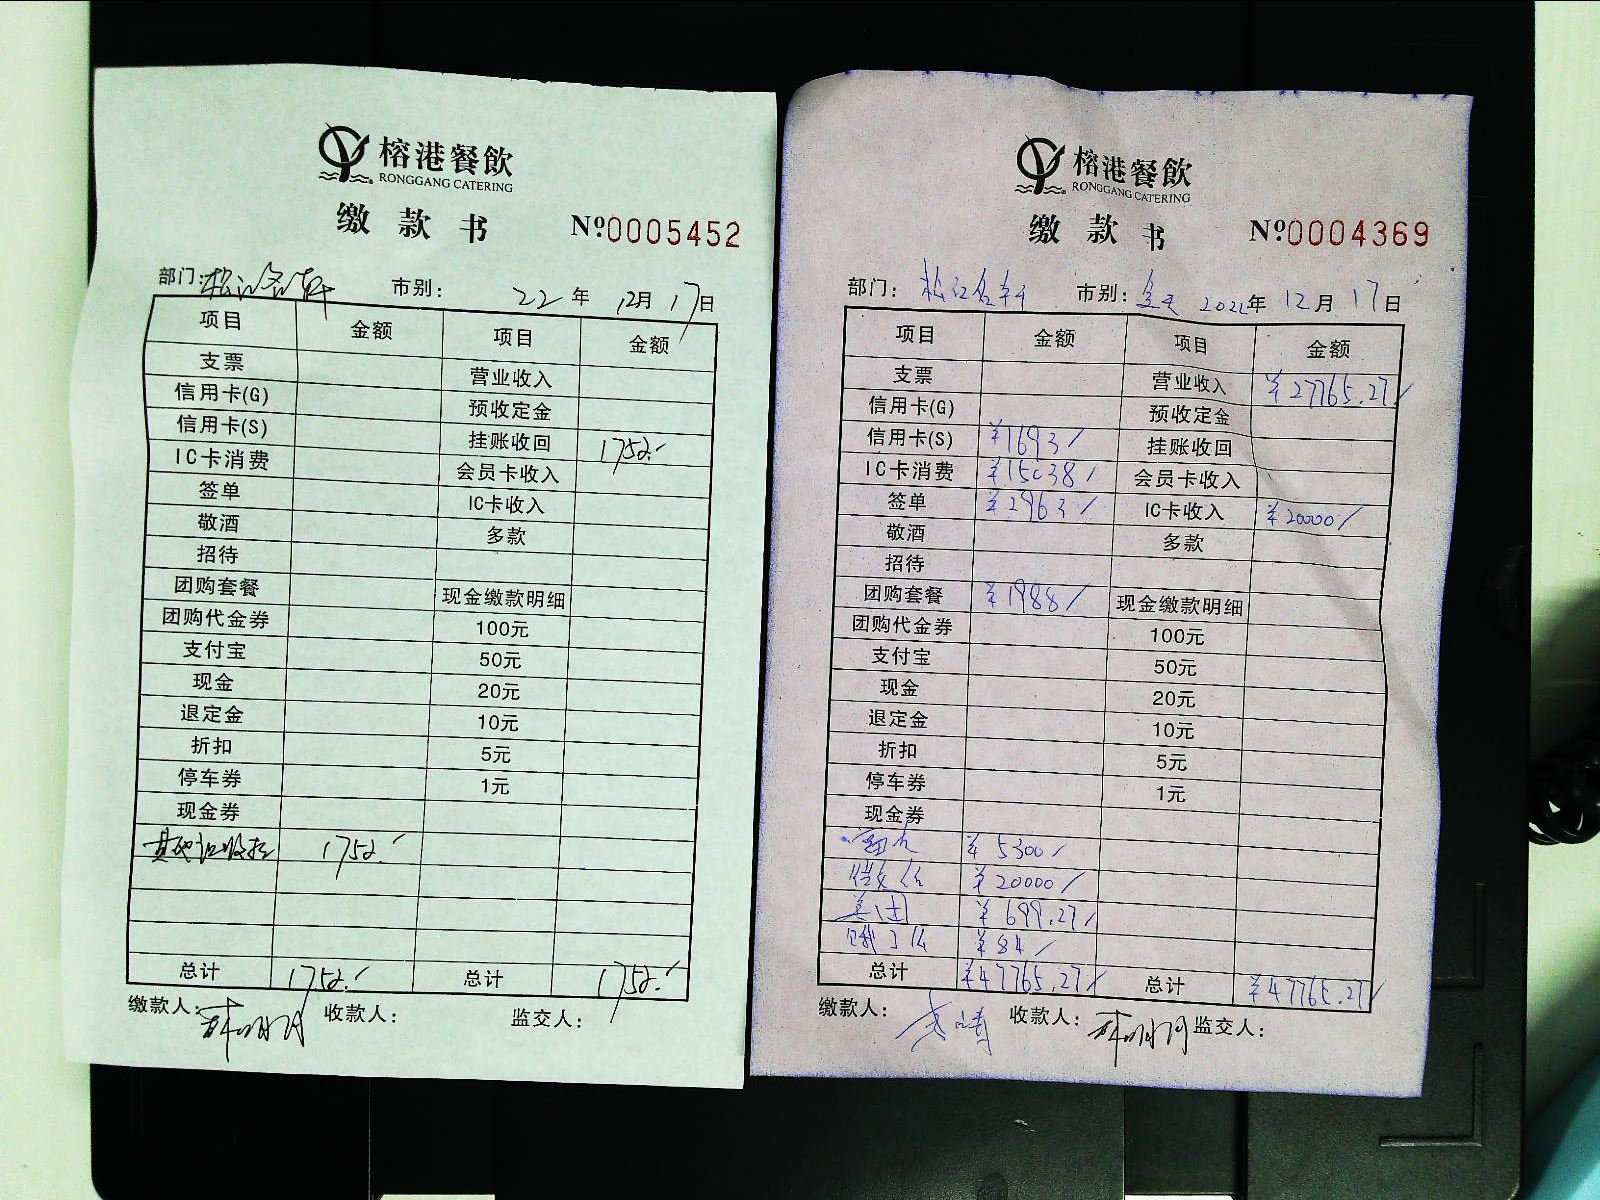 榕港餐飲
RONGGANG CATERING
缴款书 Nº0005452
部门: 松江名轩 市别: 22年 12月 17日
项目 金额 项目 金额
支票 营业收入
信用卡(G) 预收定金
信用卡(S) 挂账收回 1752.
IC卡消费 会员卡收入
签单 IC卡收入
敬酒 多款
招待
团购套餐 现金缴款明细
团购代金券 100元
支付宝 50元
现金 20元
退定金 10元
折扣 5元
停车券 1元
现金券
1752.
总计 1752. 总计 1752.
缴款人: 收款人: 监交人:
榕港餐飲
RONGGANG CATERING
缴款书 Nº0004369
部门: 松江名轩 市别: 全天 2022年 12月 17日
项目 金额 项目 金额
支票 营业收入 ¥27765.27/
信用卡(G) 预收定金
信用卡(S) ¥1693/ 挂账收回
IC卡消费 ¥15038/ 会员卡收入
签单 ¥2963/ IC卡收入 ¥20000/
敬酒 多款
招待
团购套餐 ¥1988/ 现金缴款明细
团购代金券 100元
支付宝 50元
现金 20元
退定金 10元
折扣 5元
停车券 1元
现金券
¥5300/
¥20000/
美团 ¥699.27/
饿了么 ¥84/
总计 ¥47765.27/ 总计 ¥47765.27/
缴款人: 收款人: 监交人: